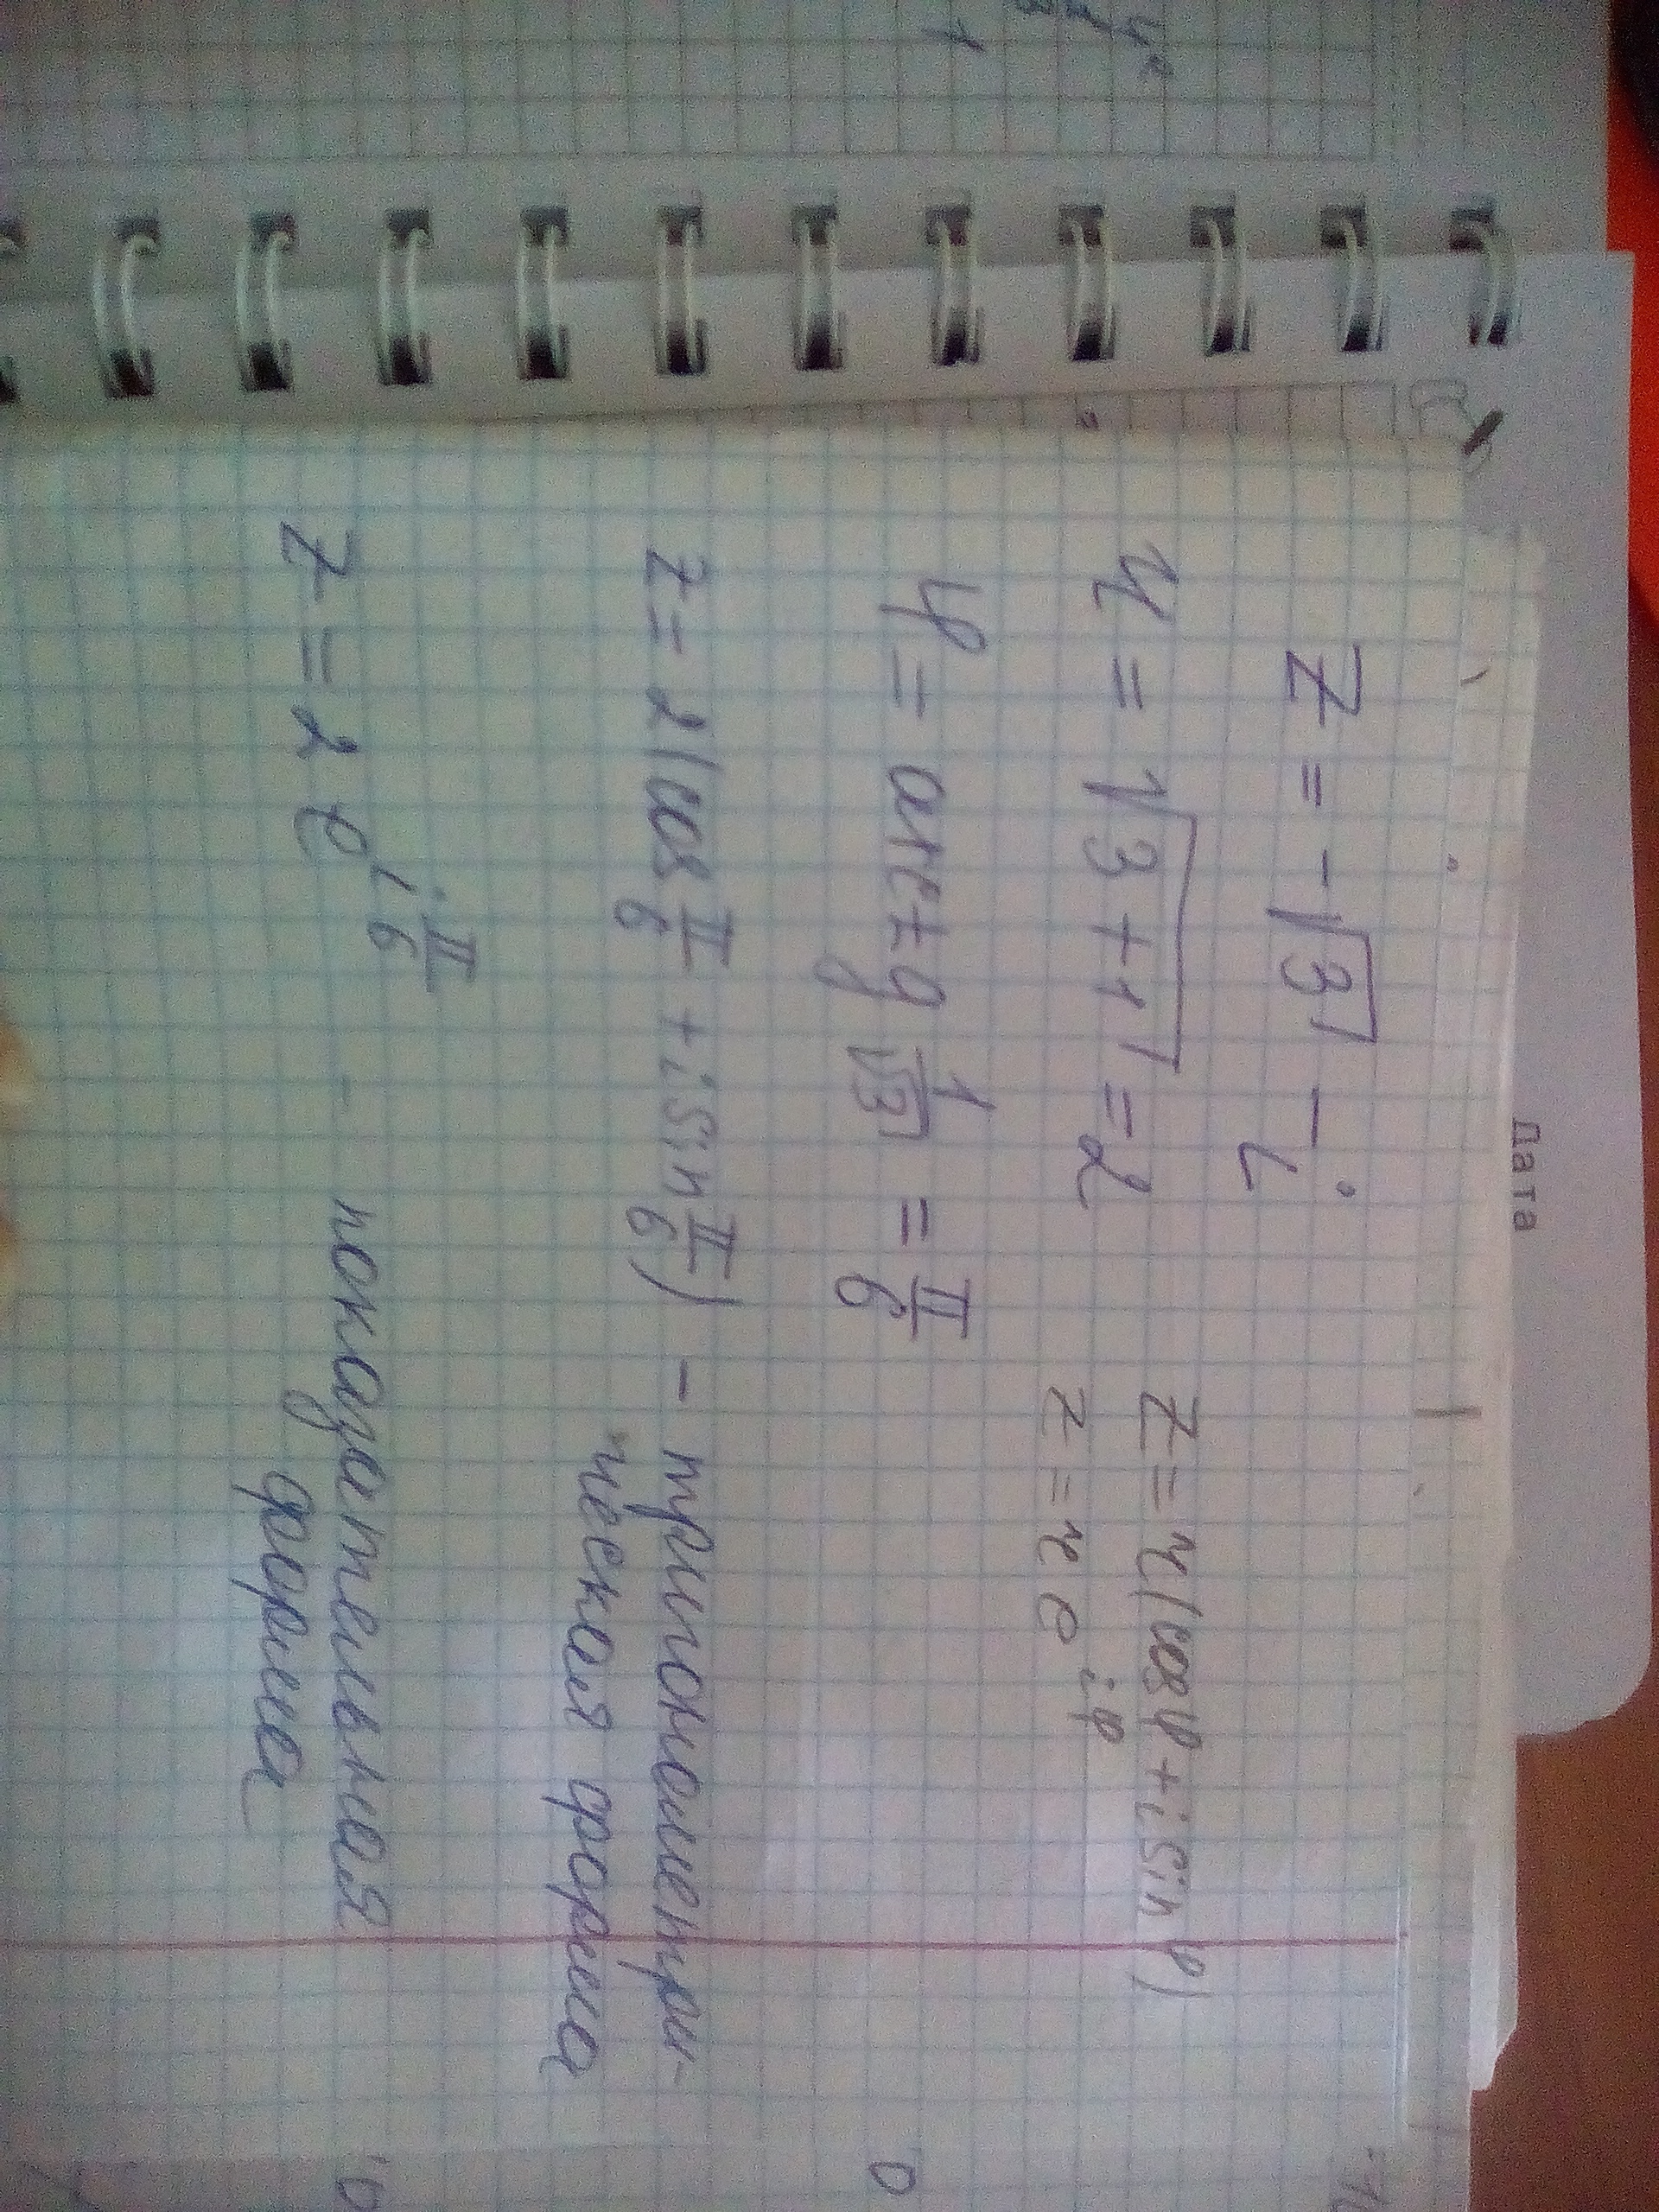 Дата
z = -√3 - i
r = √3+1 = 2
z = r(cos φ + i sin φ)
z = r e^{iφ}
φ = arctg 1/√3 = π/6
z = 2(cos π/6 + i sin π/6) - тригонометри-
ческая форма
z = 2 e^{i π/6} - показательная
форма